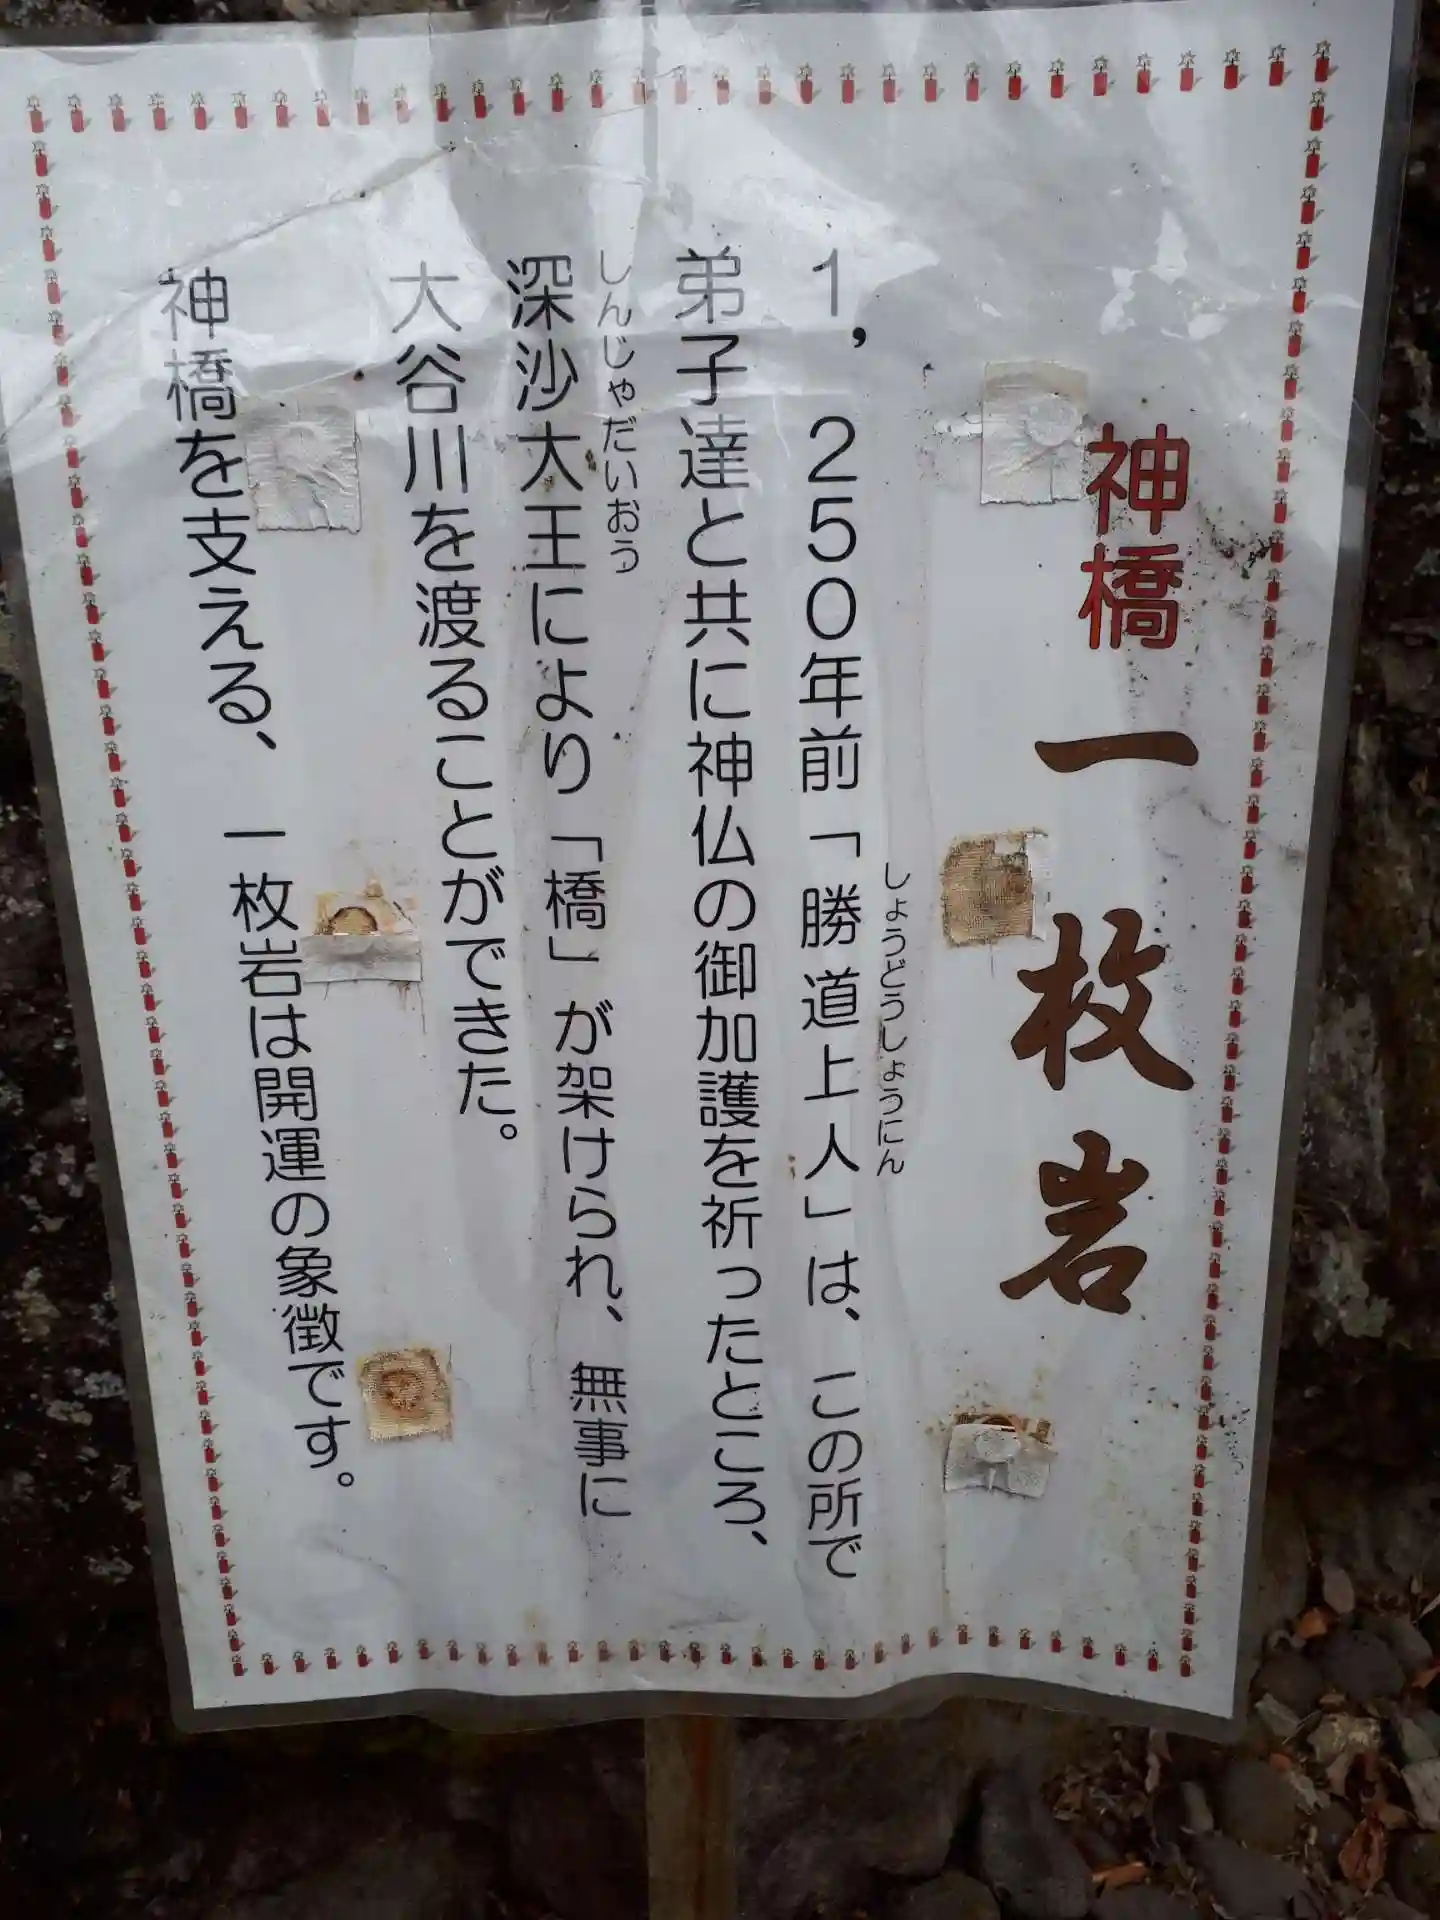 神橋 一枚岩
しょうどうしょうにん
1，250年前「勝道上人」は、この所で
弟子達と共に神仏の御加護を祈ったところ、
しんじゃだいおう
深沙大王により「橋」が架けられ、無事に
大谷川を渡ることができた。
神橋を支える、一枚岩は開運の象徴です。